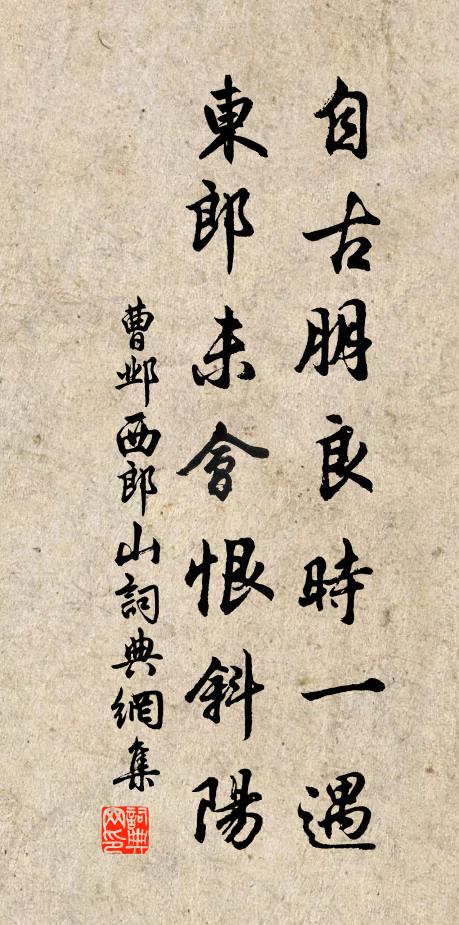 自古朋良時一遇
東郎未會恨斜陽
曹鄴西郎山詞典網集
詞典網印